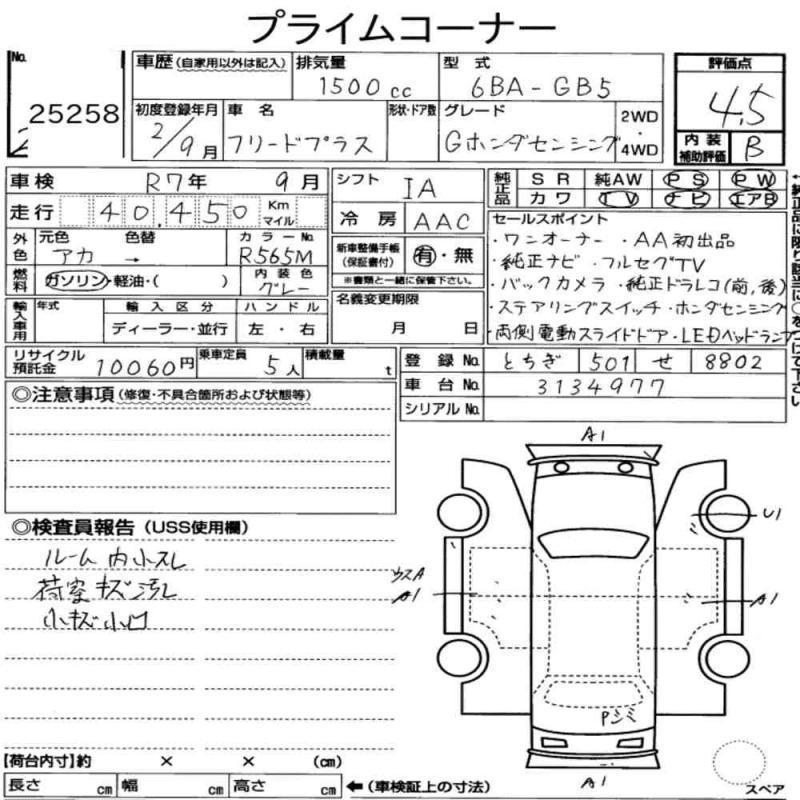 プライムコーナー
No. 25258
車歴(自家用以外は記入) 排気量 1500cc 型式 6BA-GB5
初度登録年月 2/9月 車名 フリードプラス 形状・ドア数 グレード Gホンダセンシング 2WD・4WD
評価点 4.5
内装補助評価 B
車検 R7年 9月
走行 40,450 Km マイル
外色 元色 アカ 色替 カラーNo. R565M
燃料 ガソリン・軽油・( ) 内装色 グレー
輸入車用 年式 輸入区分 ディーラー・並行 ハンドル 左・右
シフト IA
冷房 AAC
新車整備手帳(保証書付) 有・無
※書類と一緒に保管下さい。
名義変更期限 月 日
純正品 SR 純AW PS PW
カワ TV ナビ エアB
セールスポイント
・ワンオーナー ・AA初出品
・純正ナビ・フルセグTV
・バックカメラ・純正ドラレコ(前,後)
・ステアリングスイッチ・ホンダセンシング
・両側電動スライドドア・LEDヘッドランプ
リサイクル預託金 10060円 乗車定員 5人 積載量 t
登録No. とちぎ 501 せ 8802
車台No. 3134977
シリアルNo.
◎注意事項(修復・不具合箇所および状態等)
◎検査員報告(USS使用欄)
ルーム内小スレ
荷室キズ汚レ
小キズ小凹
A1
U1
ウスA
A1
A1
Pシミ
A1
スペア
【荷台内寸】約 × × (cm)
長さ cm 幅 cm 高さ cm ←(車検証上の寸法)